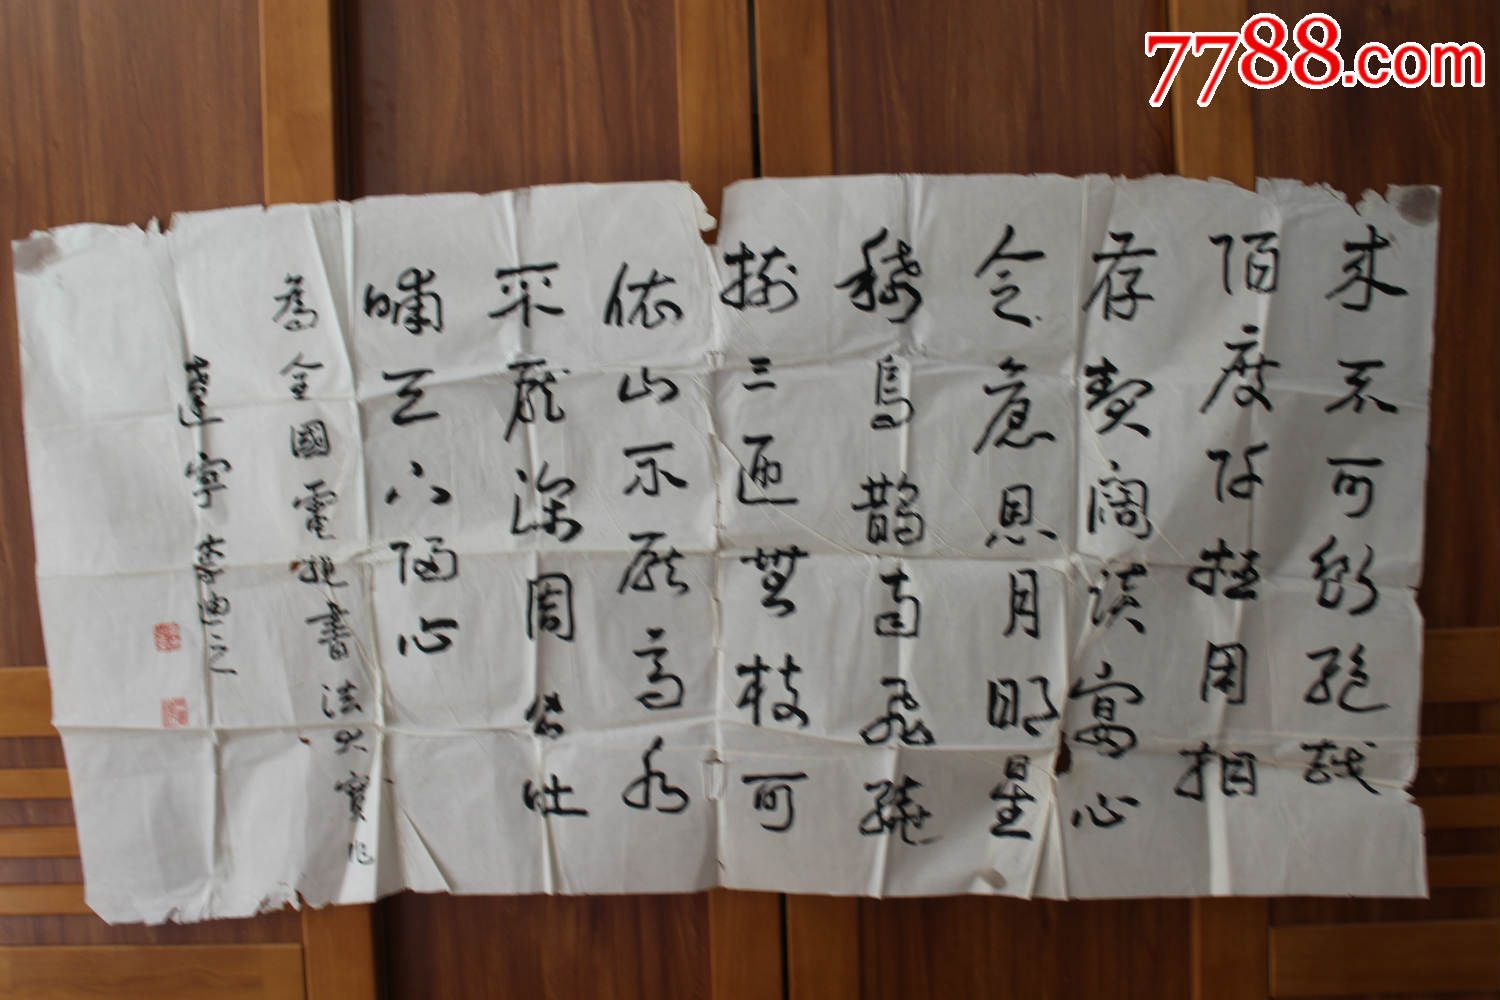 来不可断絕越
陌度阡枉用相
存契闊談宴心
念舊恩月明星
稀烏鵲南飛繞
樹三匝無枝可
依山不厭高水
不厭深周公吐
哺天下歸心
為全國電視書法大賽作
遼寧李
7788.com